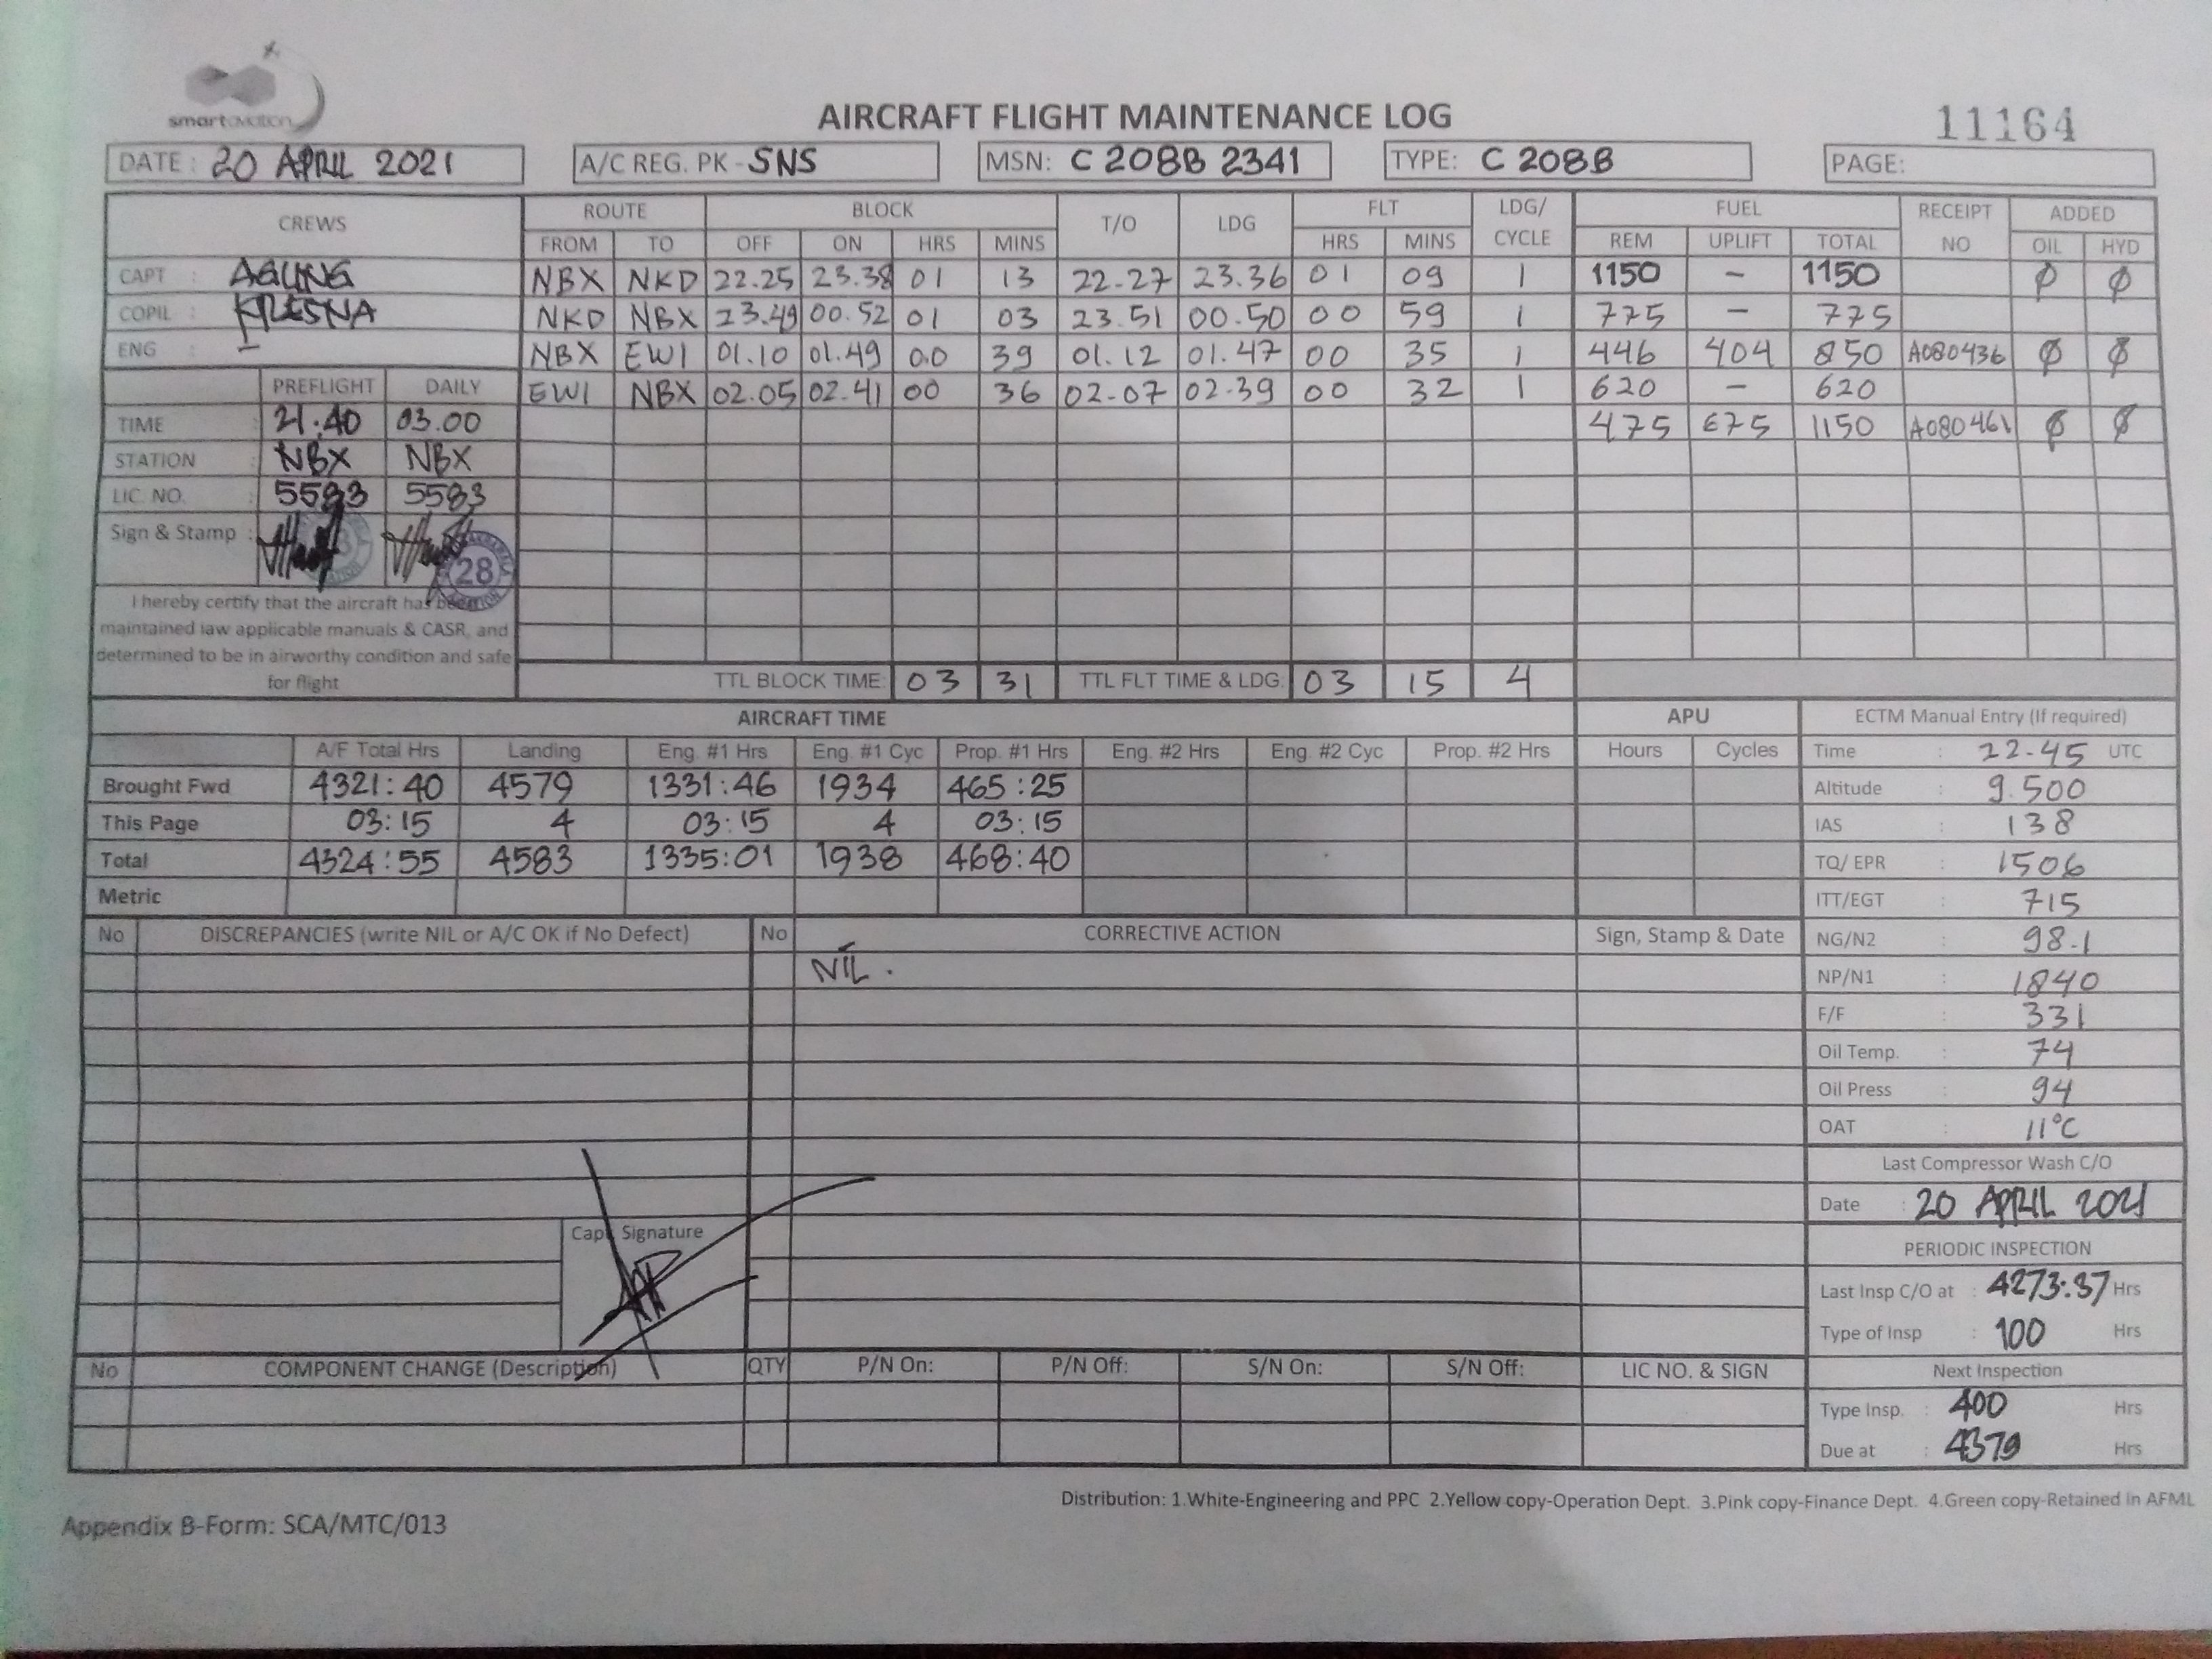 smartaviation
AIRCRAFT FLIGHT MAINTENANCE LOG
11164
DATE : 20 APRIL 2021 A/C REG. PK - SNS MSN: C 208B 2341 TYPE: C 208B PAGE:
CREWS ROUTE BLOCK T/O LDG FLT LDG/ CYCLE FUEL RECEIPT NO ADDED
FROM TO OFF ON HRS MINS HRS MINS REM UPLIFT TOTAL OIL HYD
CAPT : AGUNG NBX NKD 22.25 23.38 01 13 22-27 23.36 01 09 1 1150 - 1150 Ø Ø
COPIL : KRESNA NKD NBX 23.49 00.52 01 03 23.51 00.50 00 59 1 775 - 775
ENG : - NBX EWI 01.10 01.49 00 39 01.12 01.47 00 35 1 446 404 850 A080436 Ø Ø
PREFLIGHT DAILY EWI NBX 02.05 02.41 00 36 02-07 02-39 00 32 1 620 - 620
TIME : 21.40 03.00 475 675 1150 A080461 Ø Ø
STATION : NBX NBX
LIC. NO. : 5583 5583
Sign & Stamp :
28
I hereby certify that the aircraft has been
maintained iaw applicable manuals & CASR, and
determined to be in airworthy condition and safe
for flight
TTL BLOCK TIME: 03 31 TTL FLT TIME & LDG: 03 15 4
AIRCRAFT TIME APU ECTM Manual Entry (If required)
A/F Total Hrs Landing Eng. #1 Hrs Eng. #1 Cyc Prop. #1 Hrs Eng. #2 Hrs Eng. #2 Cyc Prop. #2 Hrs Hours Cycles Time : 22-45 UTC
Brought Fwd 4321:40 4579 1331:46 1934 465:25 Altitude : 9.500
This Page 03:15 4 03:15 4 03:15 IAS : 138
Total 4324:55 4583 1335:01 1938 468:40 TQ/ EPR : 1506
Metric ITT/EGT : 715
No DISCREPANCIES (write NIL or A/C OK if No Defect) No CORRECTIVE ACTION Sign, Stamp & Date NG/N2 : 98.1
NIL . NP/N1 : 1840
F/F : 331
Oil Temp. : 74
Oil Press : 94
OAT : 11°C
Last Compressor Wash C/O
Date : 20 APRIL 2021
Capt. Signature
PERIODIC INSPECTION
Last Insp C/O at : 4273:37 Hrs
Type of Insp : 100 Hrs
No COMPONENT CHANGE (Description) QTY P/N On: P/N Off: S/N On: S/N Off: LIC NO. & SIGN Next Inspection
Type Insp. : 400 Hrs
Due at : 4379 Hrs
Distribution: 1.White-Engineering and PPC 2.Yellow copy-Operation Dept. 3.Pink copy-Finance Dept. 4.Green copy-Retained in AFML
Appendix B-Form: SCA/MTC/013